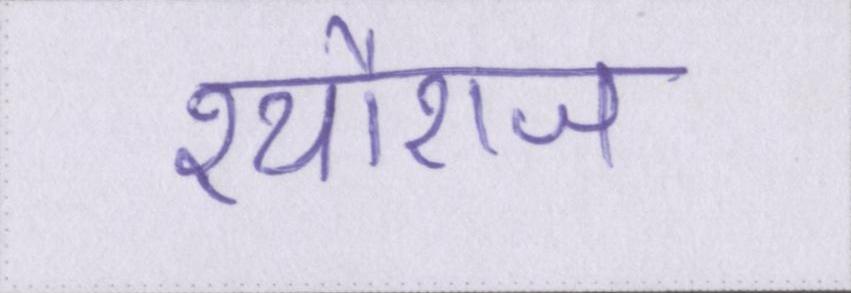 श्यौराज